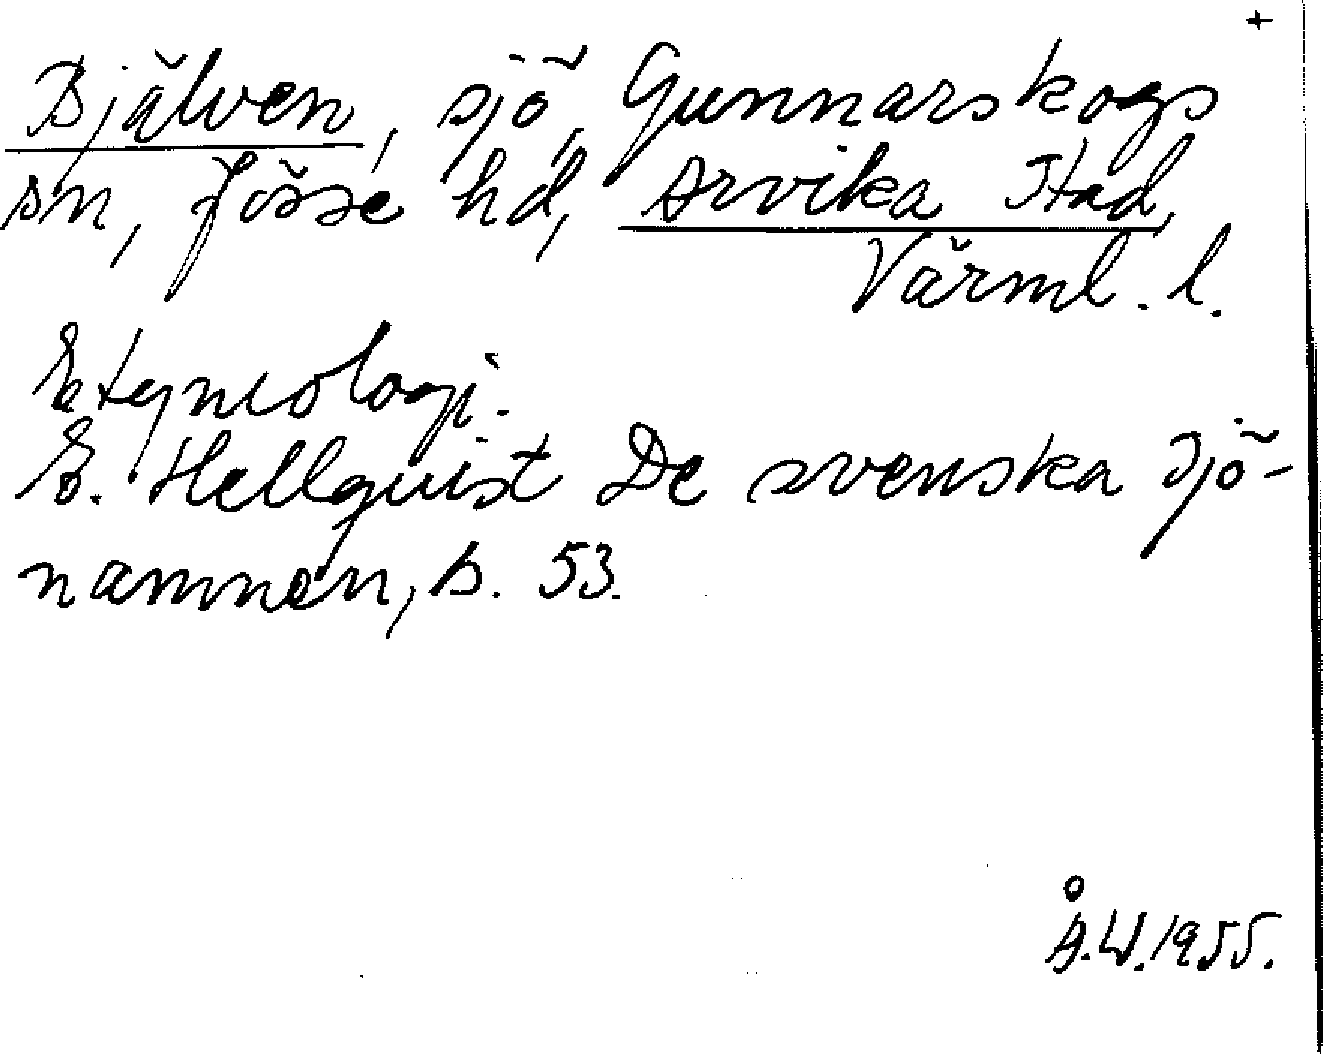 +
Bjälven, sjö, Gunnarskogs
sn, Jösse hd, Arvika stad,
Värml. l.
Etymologi.
E. Hellquist De svenska sjö-
namnen, s. 53.
Å.W. 1955.